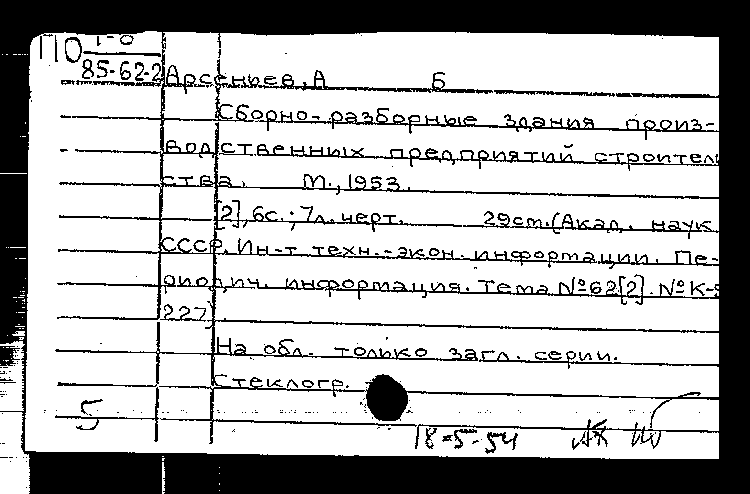 ПО
85-62-2 Арсеньев, А Б
Сборно-разборные здания произ-
водственных предприятий строитель
ства. М., 1953.
[2], 6с.; 7л. черт. 29см. (Акад. наук
СССР. Ин-т техн.-экон. информации. Пе-
риодич. информация. Тема №62[2]. №К-
227).
На обл. только загл. серии.
Стеклогр.
5
18-5-54